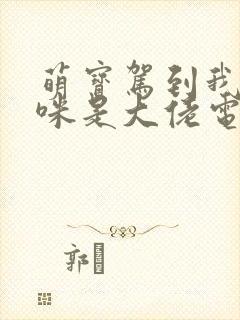 萌寶駕到我
咪是大佬電
郭